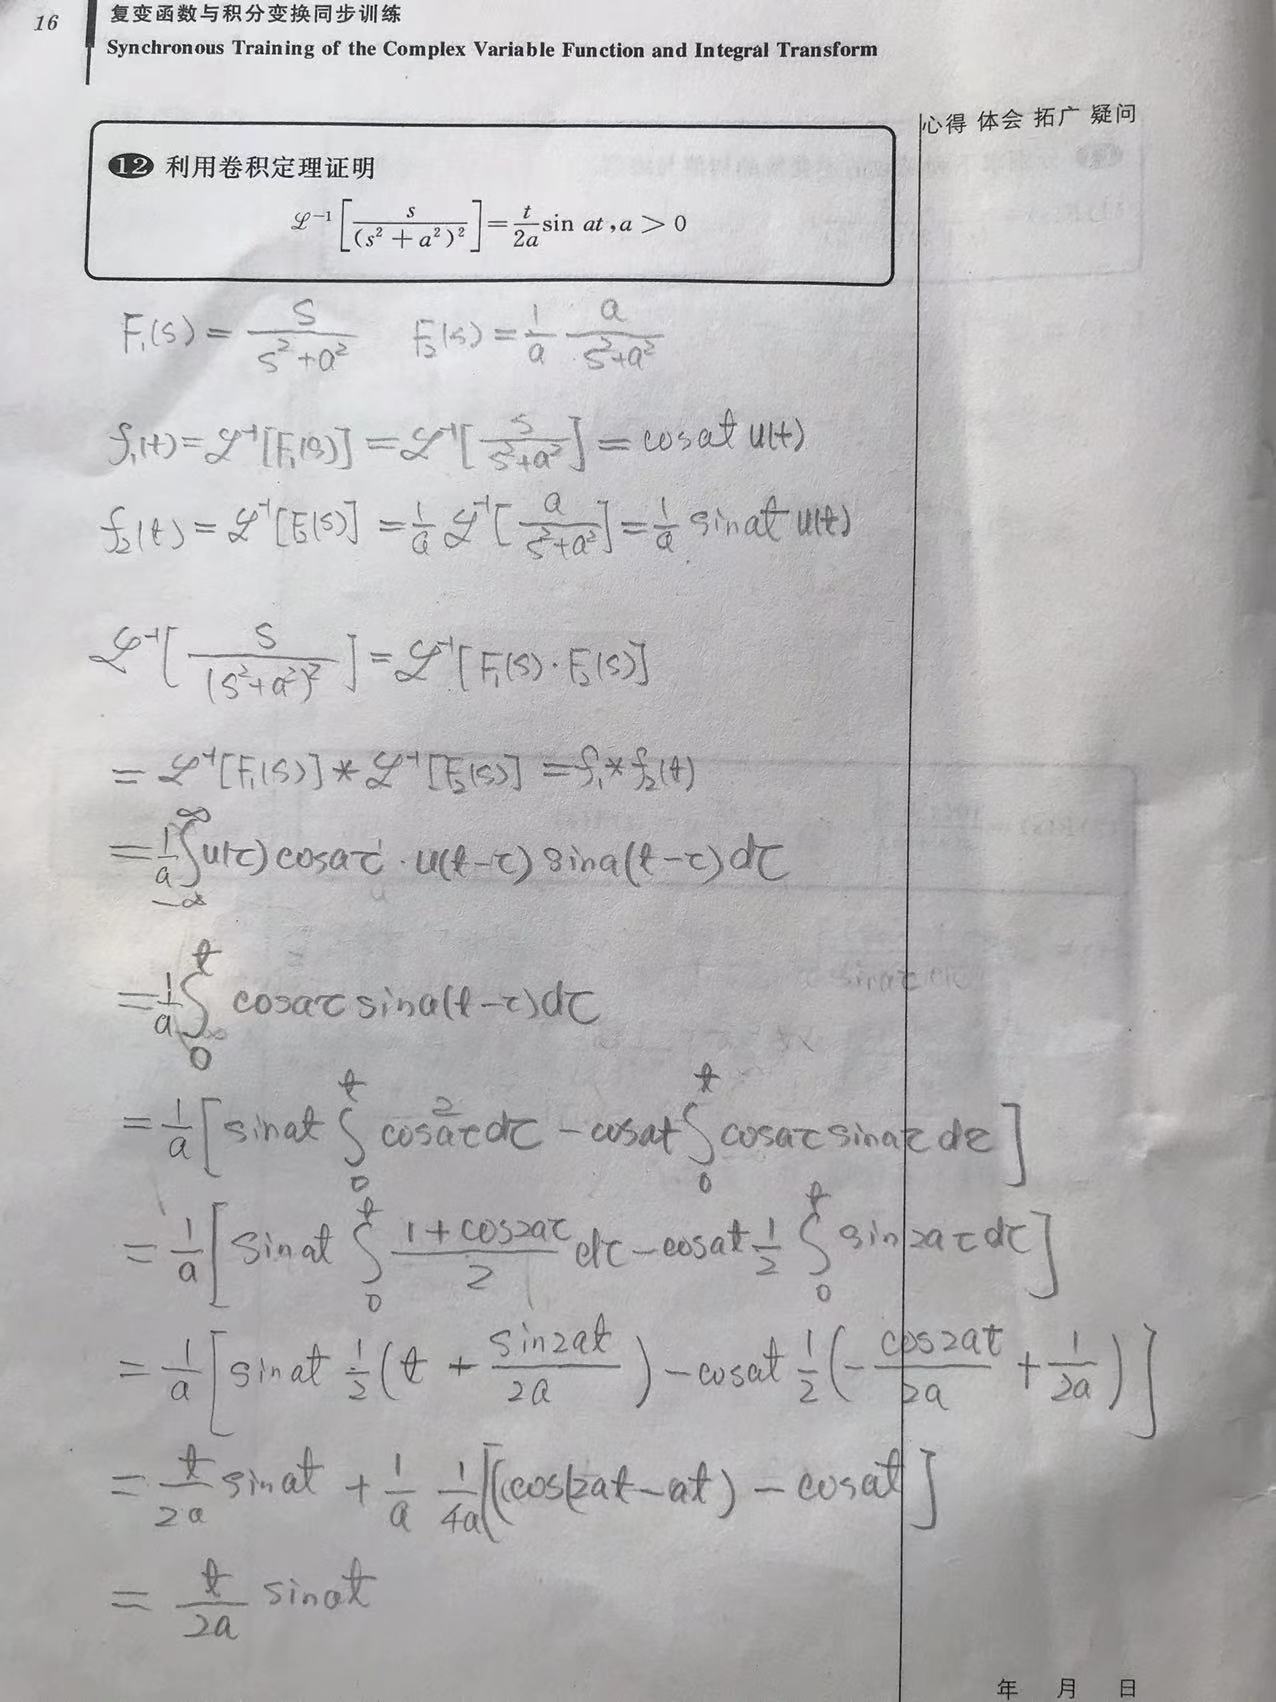 16
复变函数与积分变换同步训练
Synchronous Training of the Complex Variable Function and Integral Transform
心得 体会 拓广 疑问
12 利用卷积定理证明
ℒ⁻¹[s/(s²+a²)²]=t/2a sin at,a>0
F₁(s)=s/(s²+a²) F₂(s)=1/a a/(s²+a²)
f₁(t)=ℒ⁻¹[F₁(s)]=ℒ⁻¹[s/(s²+a²)]=cosat u(t)
f₂(t)=ℒ⁻¹[F₂(s)]=1/a ℒ⁻¹[a/(s²+a²)]=1/a sinat u(t)
ℒ⁻¹[s/(s²+a²)²]=ℒ⁻¹[F₁(s)·F₂(s)]
=ℒ⁻¹[F₁(s)]*ℒ⁻¹[F₂(s)]=f₁*f₂(t)
=1/a ∫_{-∞}^{∞} u(τ)cosaτ·u(t-τ)sina(t-τ)dτ
=1/a ∫_0^t cosaτsina(t-τ)dτ
=1/a[sinat ∫_0^t cos²aτdτ-cosat ∫_0^t cosaτsinaτdτ]
=1/a[sinat ∫_0^t (1+cos2aτ)/2 dτ-cosat 1/2 ∫_0^t sin2aτdτ]
=1/a[sinat 1/2(t+sin2at/2a)-cosat 1/2(-cos2at/2a+1/2a)]
=t/2a sinat+1/a 1/4a[(cos(2at-at)-cosat]
=t/2a sinat
年 月 日